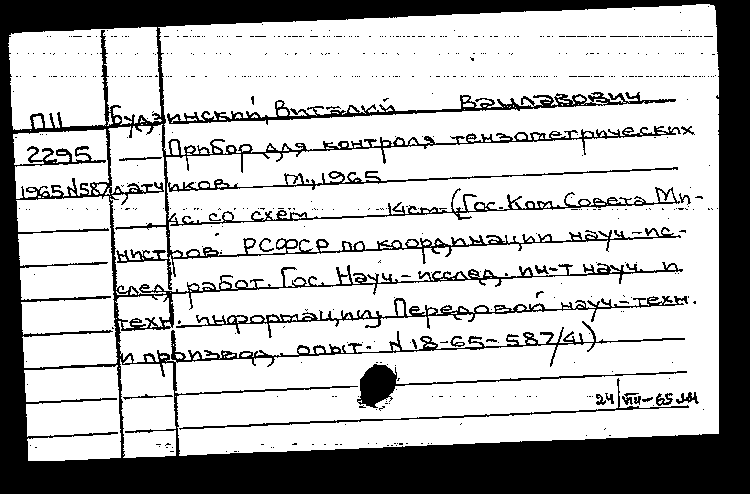 П11 Будзинский, Виталий Вацлавович
2295 — Прибор для контроля тензометрических
1965 N587 датчиков. М., 1965
4с. со схем. 14см. (Гос. Ком. Совета Ми-
нистров РСФСР по координации науч.-ис-
след. работ. Гос. Науч.-исслед. ин-т науч. и
техн. информации. Передовой науч.-техн.
и производ. опыт. N 18-65-587/41).
24/VII-65